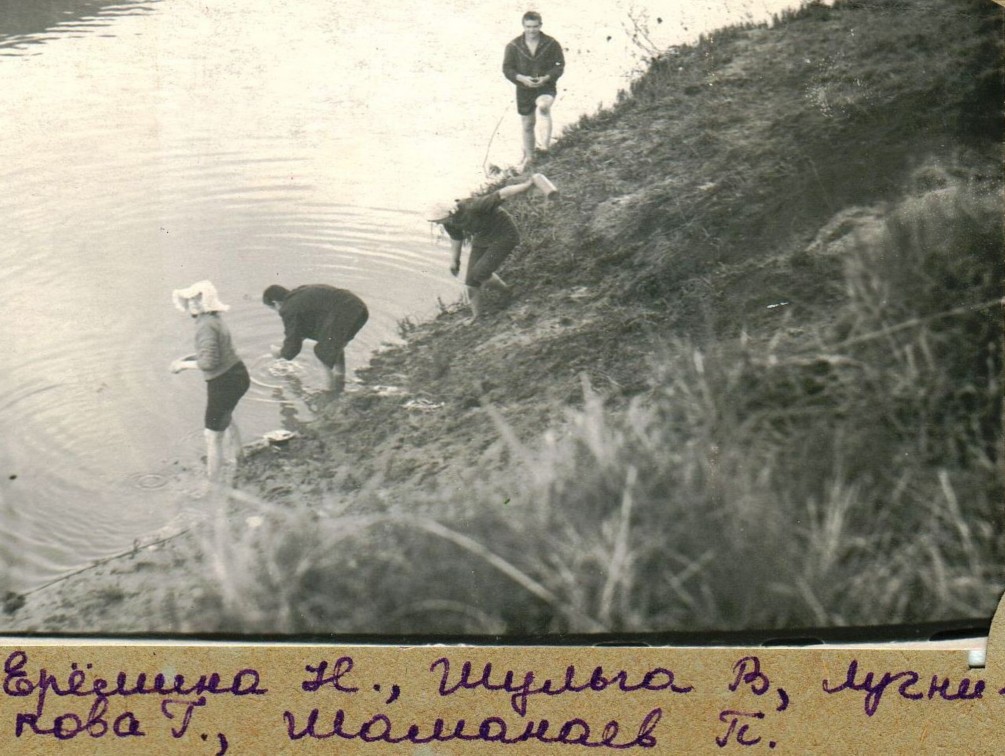 Ерёмина Н., Шульга В, Лугни-
кова Г., Шаманаев П.